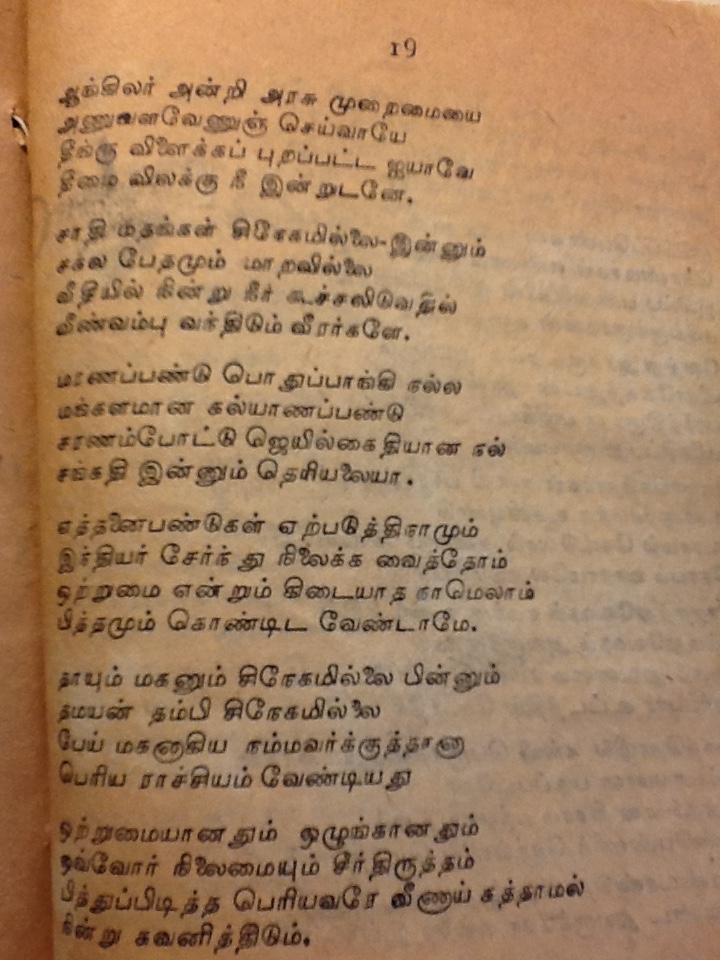 19
ஆங்கிலர் அன்றி அரசு முறைமையை
அணுவளவேணுஞ் செய்வாயே
தீங்கு விளைக்கப் புறப்பட்ட ஐயாவே
தீமை விலக்கு நீ இன்றுடனே.
சாதி மதங்கள் சிநேகமில்லை-இன்னும்
சகல பேதமும் மாறவில்லை
வீதியில் நின்று நீர் கூச்சலிடுவதில்
வீண்வம்பு வந்திடும் வீரர்களே.
மரணப்பண்டு பொதுப்பாங்கி நல்ல
மங்களமான கல்யாணப்பண்டு
சரணம்போட்டு ஜெயில்கைதியான நல்
சங்கதி இன்னும் தெரியலையா.
எத்தனைபண்டுகள் ஏற்படுத்தினாமும்
இந்தியர் சேர்ந்து நிலைக்க வைத்தோம்
ஒற்றுமை என்றும் கிடையாத நாமெலாம்
பித்தமும் கொண்டிட வேண்டாமே.
தாயும் மகனும் சிநேகமில்லை பின்னும்
தமயன் தம்பி சிநேகமில்லை
பேய் மகனாகிய நம்மவர்க்குத்தானா
பெரிய ராச்சியம் வேண்டியது
ஒற்றுமையானதும் ஒழுங்கானதும்
ஒவ்வோர் நிலைமையும் சீர்திருத்தம்
பித்துப்பிடித்த பெரியவரே வீணாய் கத்தாமல்
நின்று கவனித்திடும்.